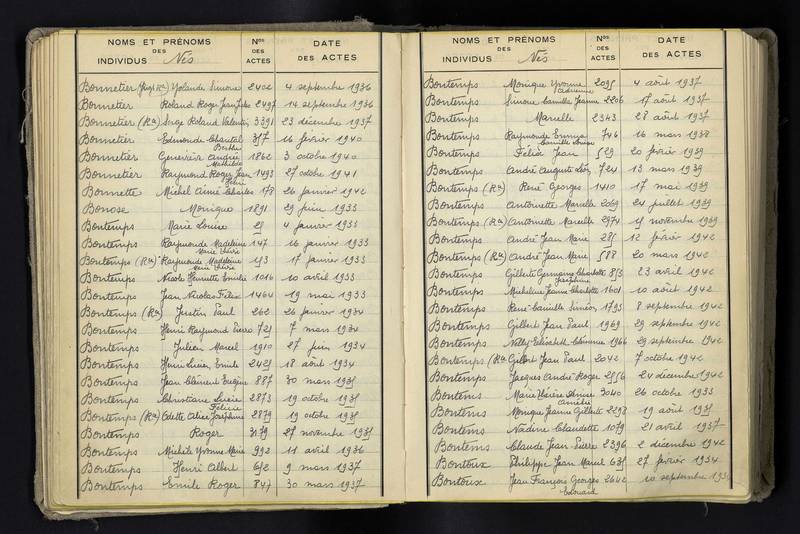 NOMS ET PRÉNOMS
DES
INDIVIDUS Nés
Nos
DES
ACTES
DATE
DES ACTES
Bonnetier Yolande Simone 2402 4 septembre 1936
Bonnetier Roland Roger Jean Jules 2497 14 septembre 1936
Bonnetier (Ra) Serge Roland Valentin 3391 23 décembre 1937
Bonnetier Edmonde Chantal 357 16 février 1940
Berthe
Bonnetier Geneviève Andrée 1862 3 octobre 1940
Mathilde
Bonnetier Raymond Roger Jean 1493 27 octobre 1941
Henri
Bonnette Michel Aimé Charles 178 26 janvier 1942
Bonose Monique 1891 29 juin 1933
Bontemps Marie Louise 29 4 janvier 1933
Bontemps Raymonde Madeleine 147 16 janvier 1933
Marie Livie
Bontemps (Ra) Raymonde Madeleine 153 17 janvier 1933
Marie Livie
Bontemps Nicole Henriette Emilie 1016 10 avril 1933
Bontemps Jean Nicolas Félix 1464 19 mai 1933
Bontemps (Ra) Justin Paul 262 26 janvier 1934
Bontemps Henri Raymond Pierre 729 7 mars 1934
Bontemps Julien Marcel 1910 27 juin 1934
Bontemps Henri Lucien Emile 2429 18 août 1934
Bontemps Jean Clément Eugène 887 30 mars 1935
Bontemps Christiane Lucie 2873 19 octobre 1935
Félicie
Bontemps (Ra) Odette Alice Joséphine 2879 19 octobre 1935
Bontemps Roger 3179 27 novembre 1935
Bontemps Michèle Yvonne Marie 992 11 avril 1936
Bontemps Henri Albert 652 9 mars 1937
Bontemps Emile Roger 847 30 mars 1937
NOMS ET PRÉNOMS
DES
INDIVIDUS Nés
Nos
DES
ACTES
DATE
DES ACTES
Bontemps Monique Yvonne 2095 4 août 1937
Adrienne
Bontemps Simone Camille Jeanne 2206 17 août 1937
Bontemps Marcelle 2343 28 août 1937
Bontemps Raymonde Emma 746 16 mars 1938
Camille Louise
Bontemps Félix Jean 529 20 février 1939
Bontemps André Auguste Léon 724 13 mars 1939
Bontemps (Ra) René Georges 1410 17 mai 1939
Bontemps Antoinette Marcelle 2069 24 juillet 1939
Bontemps (Ra) Antoinette Marcelle 2974 15 novembre 1939
Bontemps André Jean Marie 285 12 février 1942
Bontemps (Ra) André Jean Marie 588 20 mars 1942
Bontemps Gilberte Germaine Charlotte 853 23 avril 1942
Joséphine
Bontemps Micheline Jeanne Charlotte 1601 10 août 1942
Bontemps René Camille Siméon 1795 8 septembre 1942
Bontemps Gilbert Jean Paul 1969 29 septembre 1942
Bontemps Nelly Elisabeth 1966 29 septembre 1942
Bontemps (Ra) Gilbert Jean Paul 2042 7 octobre 1942
Bontemps Jacques André Roger 2556 24 décembre 1942
Bontems Marie Thérèse Denise 3040 26 octobre 1933
Bontems Monique Jeanne Gilberte 2298 19 août 1935
Bontems Nadine Claudette 1079 21 avril 1937
Bontems Claude Jean Pierre 2396 2 décembre 1942
Bontoux Philippe Jean Marcel 635 27 février 1934
Bontoux Jean François Georges 2642 10 septembre
Edouard